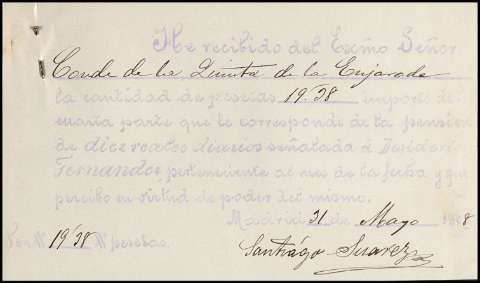 He recibido del Exmo Señor
Conde de la Quinta de la Enjarada
la cantidad de pesetas 19'38 importe de la
cuarta parte que le corresponde de la pension
de diez reales diarios señalada á Desiderio
Fernandez perteneciente al mes de la fecha y que
percibo en virtud de poder del mismo.
Madrid 31 de Mayo 1888
Son 19'38 pesetas.
Santiago Suarez